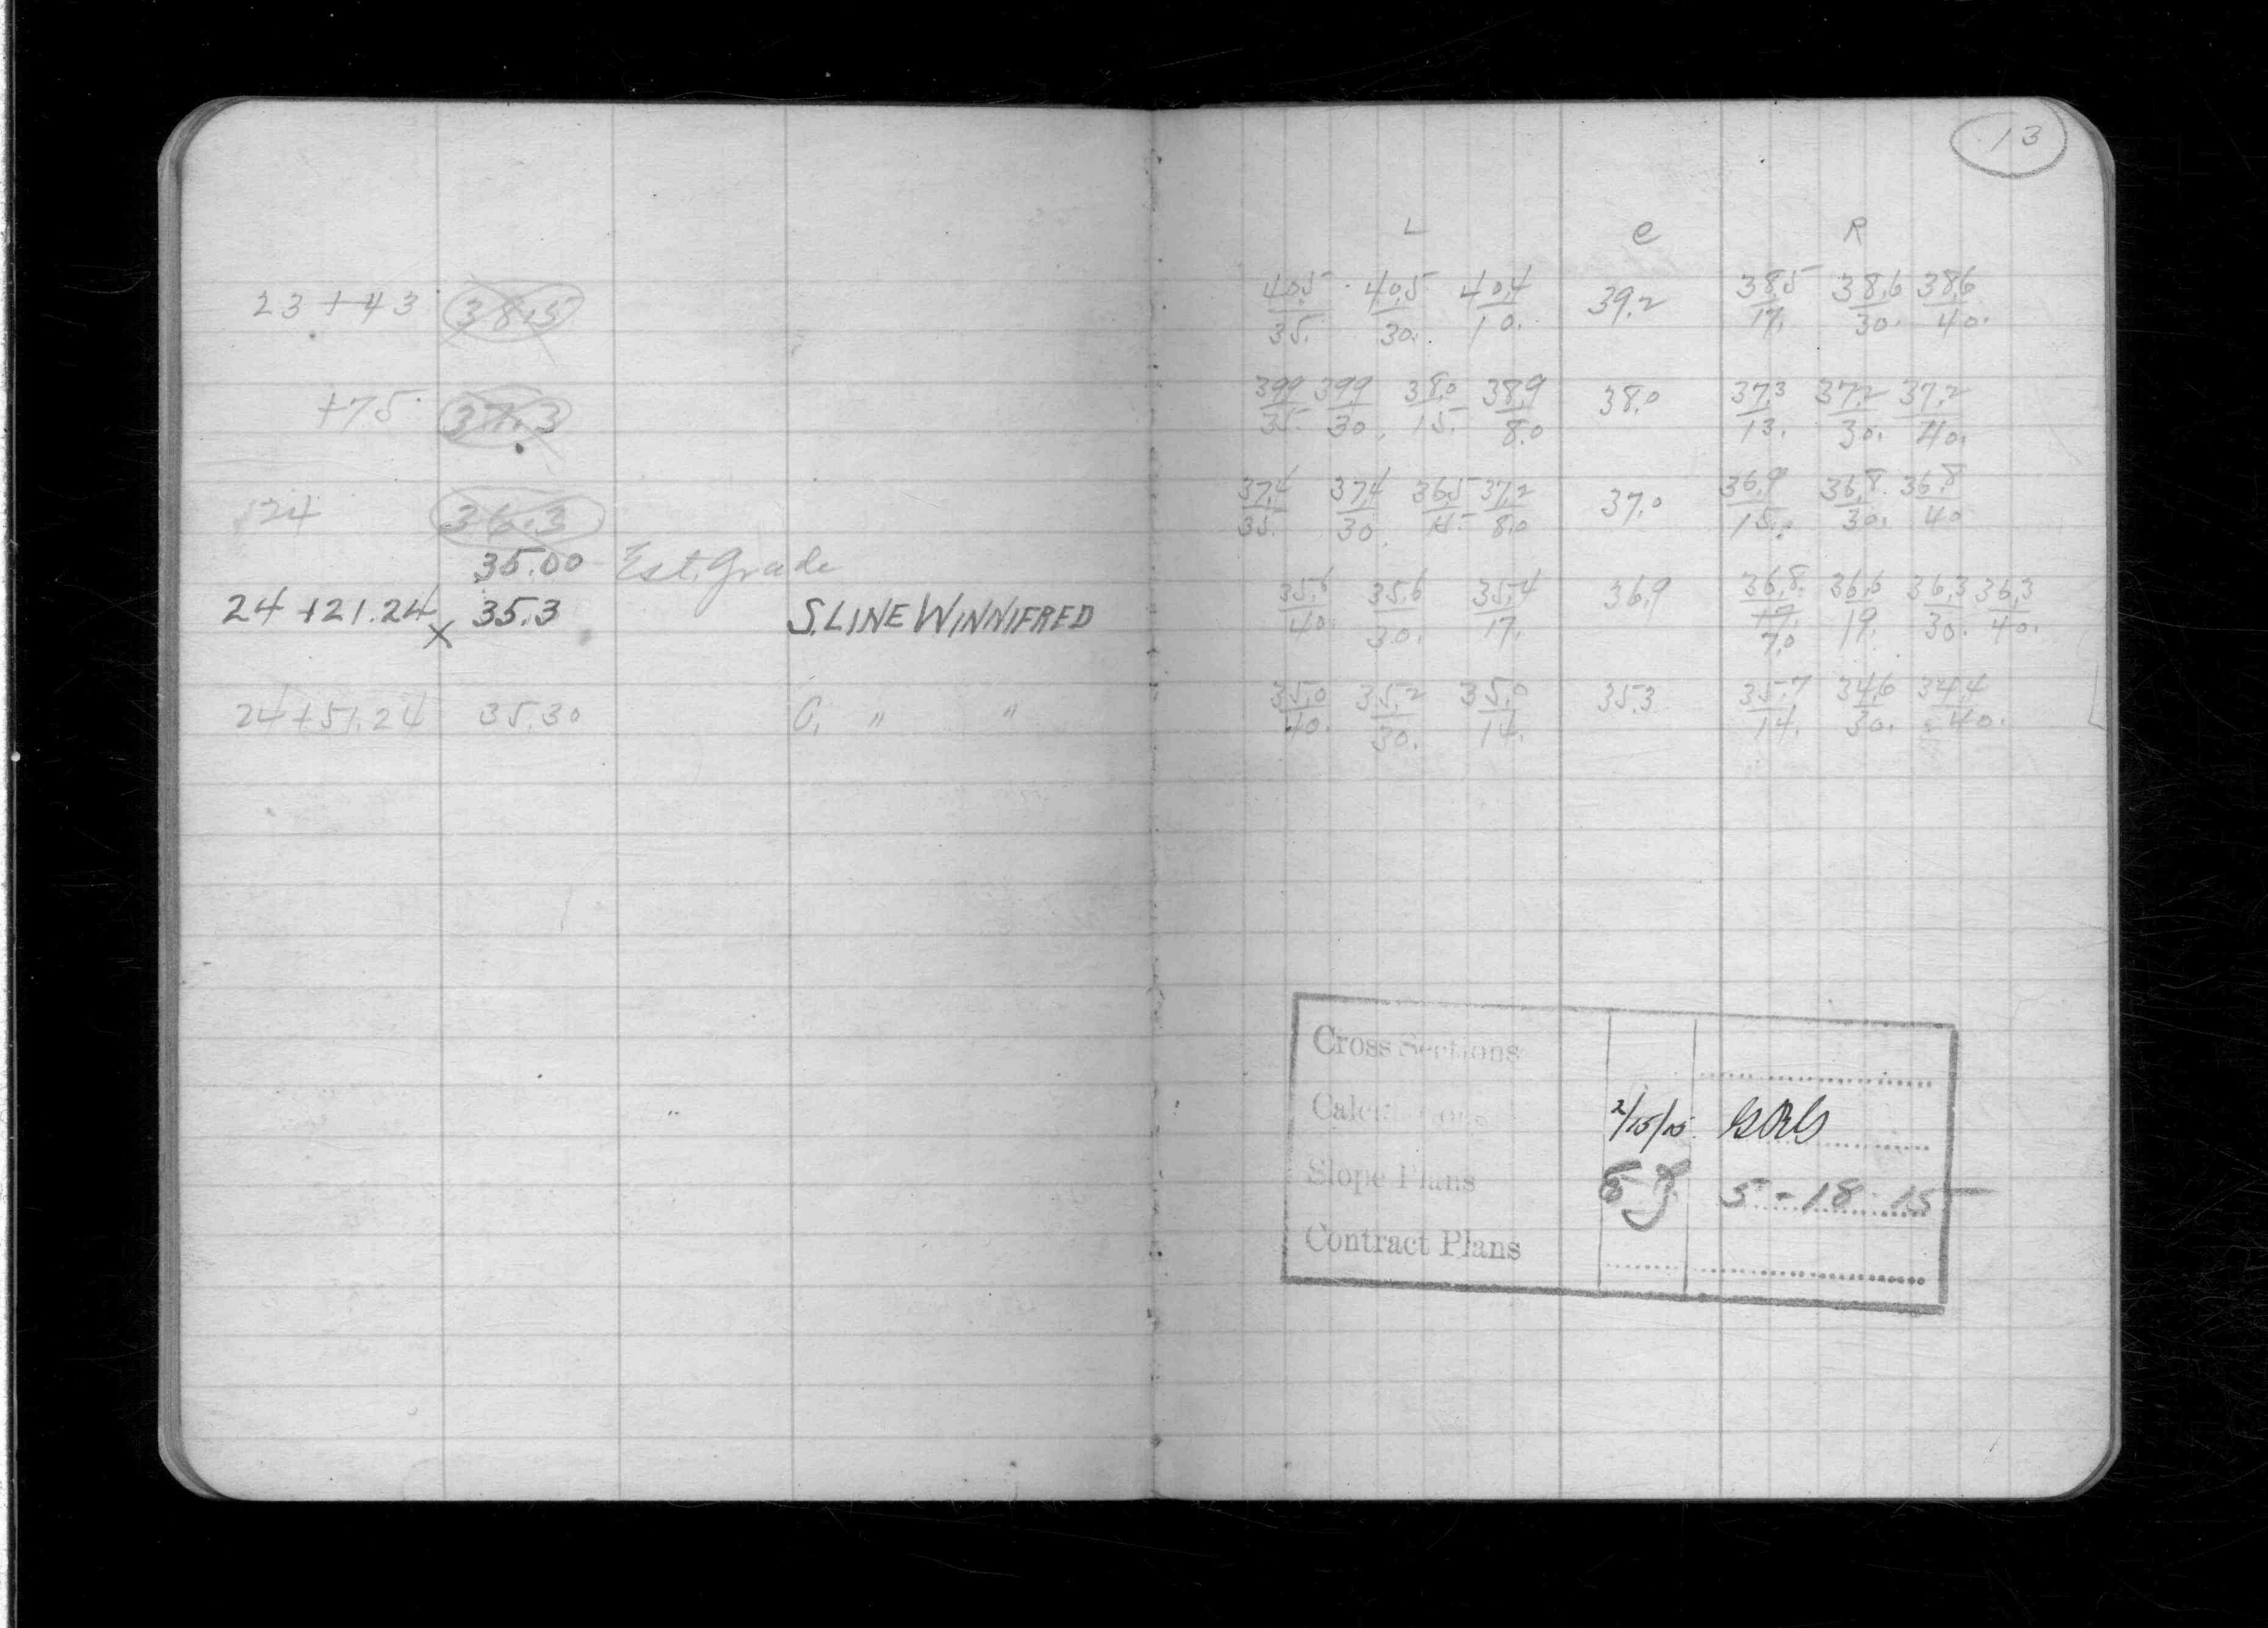 13
L C R
23+43 38.5 40.5/35. 40.5/30. 40.4/10. 39.2 38.5/17. 38.6/30. 38.6/40.
+75 37.3 39.9/35. 39.9/30. 38.0/15. 38.9/8.0 38.0 37.3/13. 37.2/30. 37.2/40.
24 36.3 37.4/35. 37.4/30. 36.5/15. 37.2/8.0 37.0 36.9/15. 36.8/30. 36.8/40
35.00 Est. Grade
24+21.24 x 35.3 S. LINE WINNIFRED 35.6/40. 35.6/30. 35.4/17. 36.9 36.8/17. 7.0 36.6/19. 36.3/30. 36.3/40.
24+51.24 35.30 C. " " 35.0/40. 35.2/30. 35.0/14. 35.3 35.7/14. 34.6/30. 34.4/40.
Cross Sections
Calculations 2/15/15
Slope Plans 5-18-15
Contract Plans